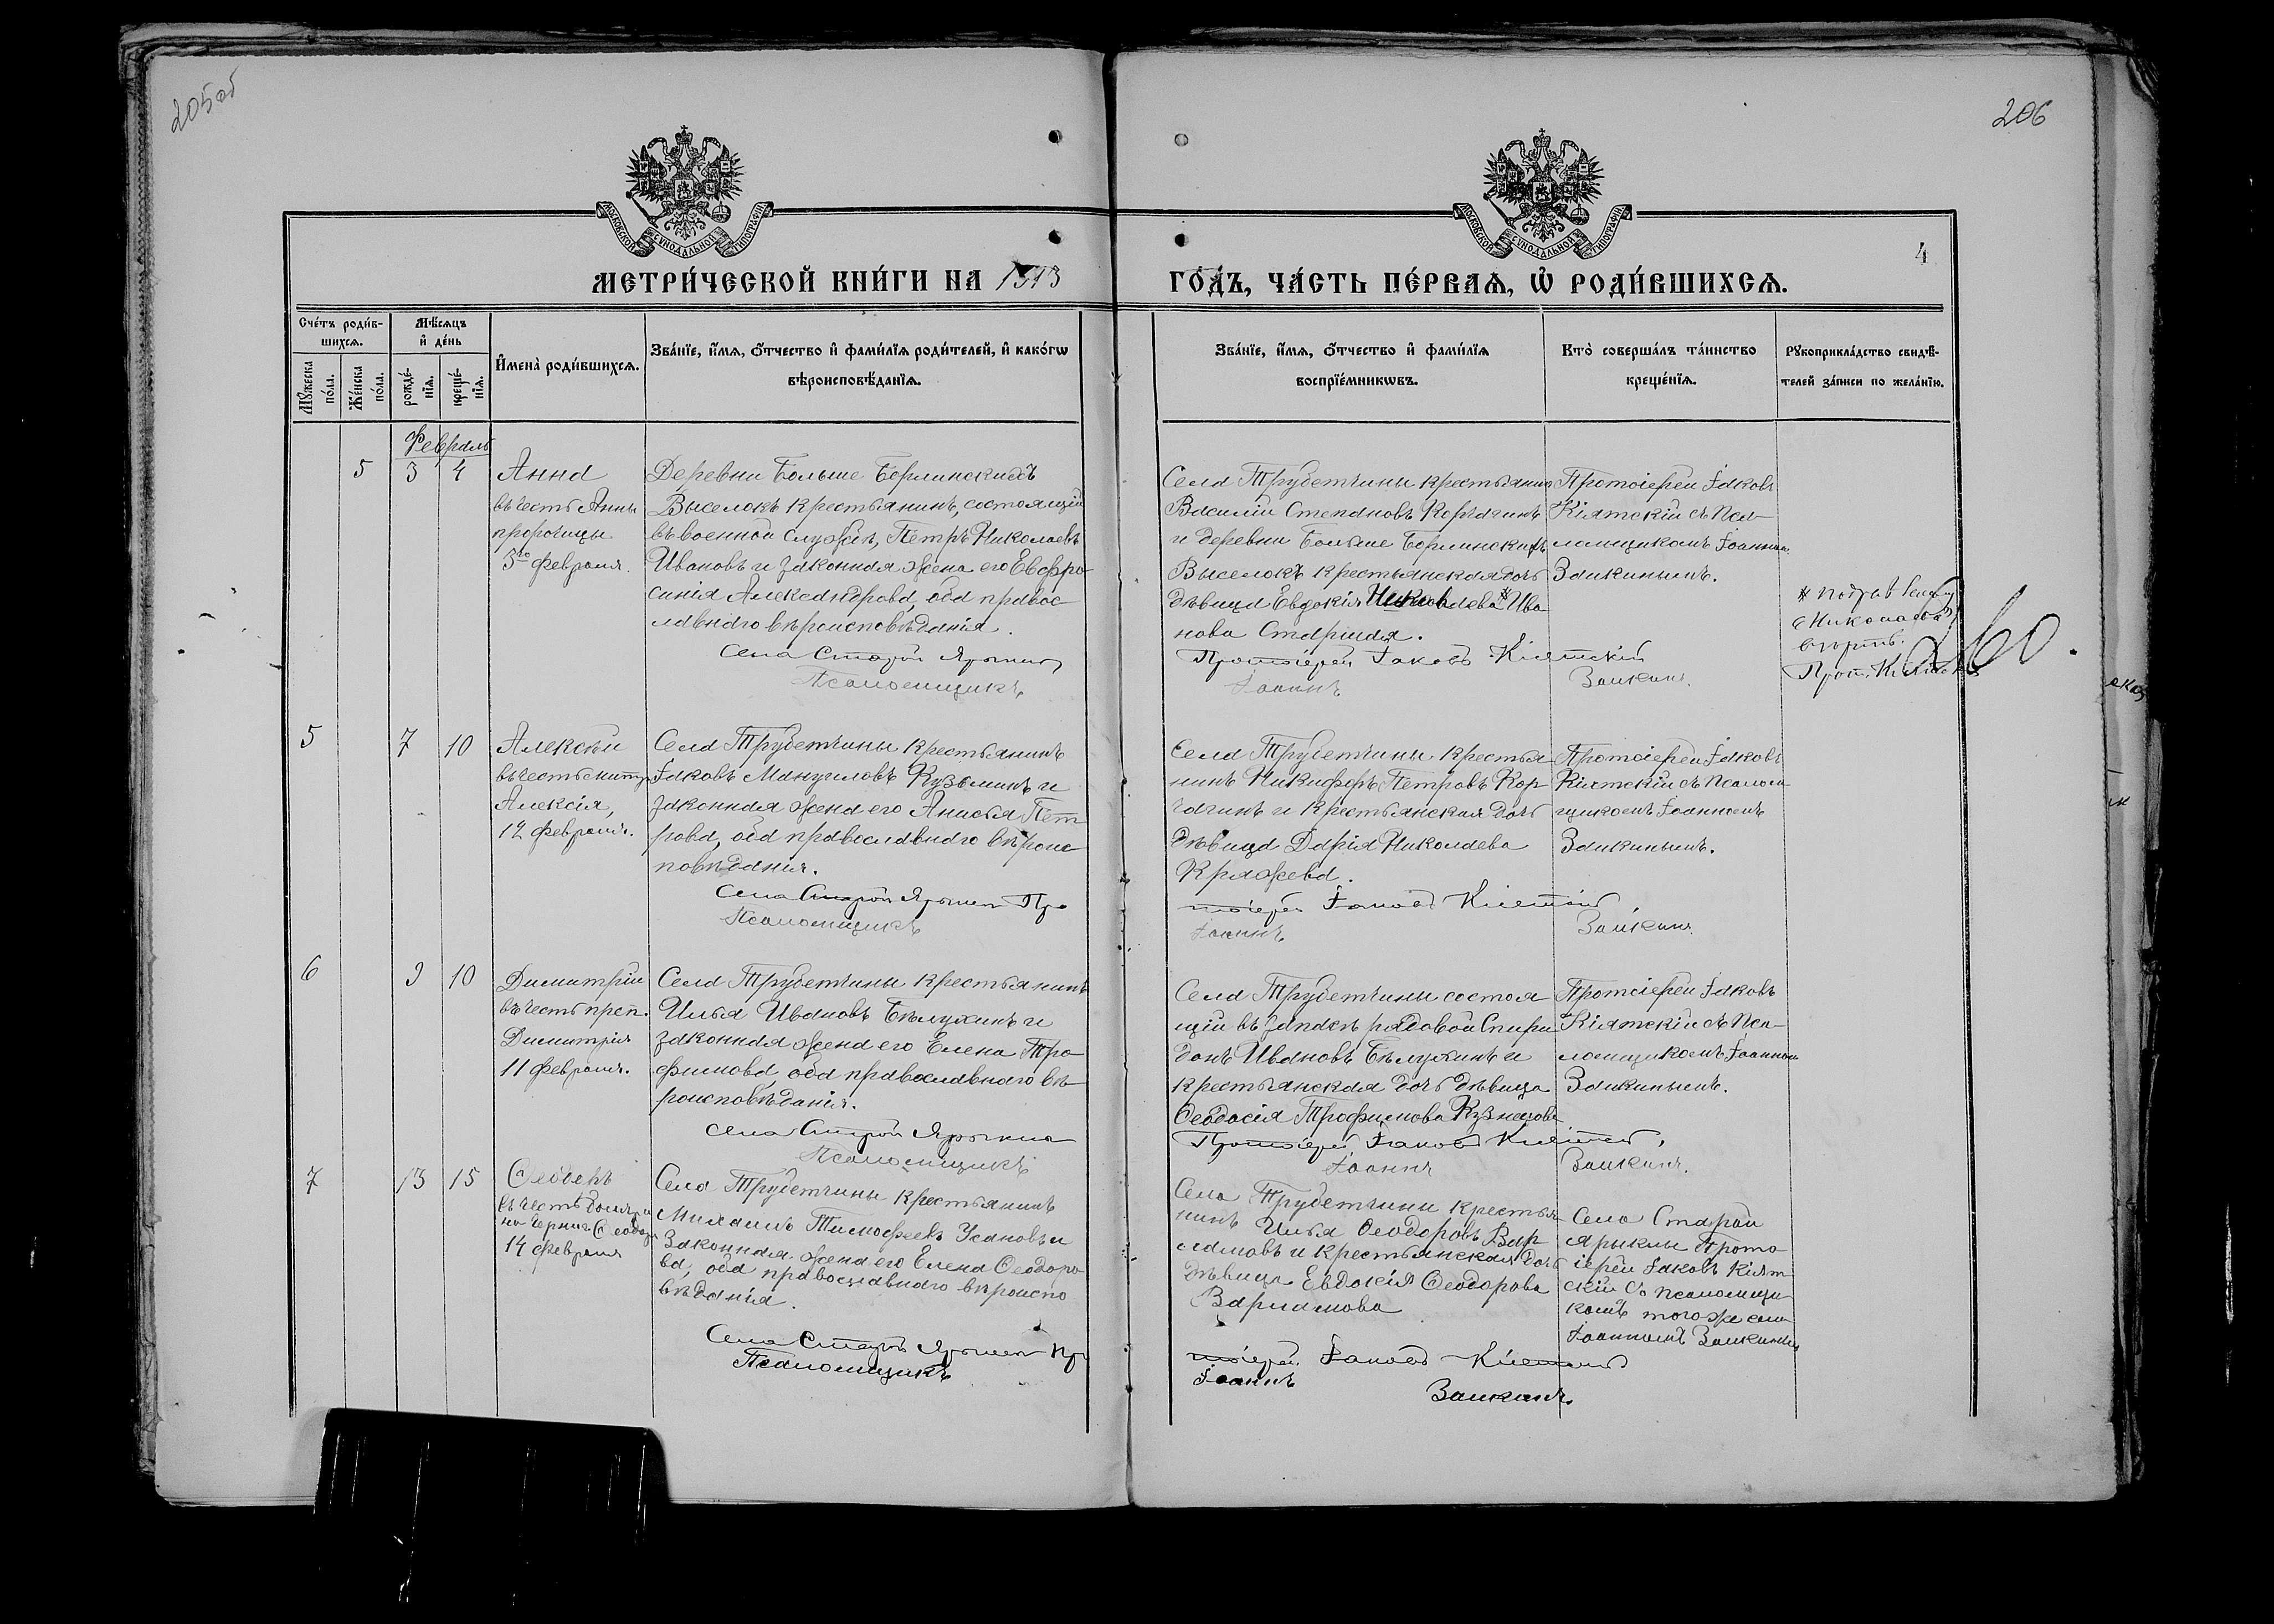 205 об
206
МОСКОВСКОЙ СУНОДАЛЬНОЙ ТИПОГРАФІИ
МОСКОВСКОЙ СУНОДАЛЬНОЙ ТИПОГРАФІИ
4
МЕТРИ́ЧЕСКОЙ КНИ́ГИ НА 1913 ГО́ДЪ, ЧА́СТЬ ПЕ́РВАѦ, Ѡ҆ РОДИ́ВШИХСѦ.
Сче́тъ роди́в-
шихсѧ.
Мꙋ́жеска по́ла.
Же́нска по́ла.
Мѣ́сѧцъ
и҆ де́нь
рожде́-
нїѧ.
креще́-
нїѧ.
И҆мена̀ роди́вшихсѧ.
Зва́нїе, и҆́мѧ, ѻ҆́тчество и҆ фами́лїѧ роди́телей, и҆ како́гѡ
вѣроисповѣ́данїѧ.
Зва́нїе, и҆́мѧ, ѻ҆́тчество и҆ фами́лїѧ
воспрїе́мникѡвъ.
Кто̀ соверша́лъ та́инство
креще́нїѧ.
Рꙋкоприкла́дство свидѣ́-
телей за́писи по жела́нїю.
Февраль
5 3 4
Анна
въ честь Анны
пророчицы
3го февраля.
Деревни Больше Борлинскихъ
Выселокъ крестьянинъ, состоящій
въ военной службѣ, Петръ Николаевъ
Ивановъ и законная жена его Евфро-
синія Александрова, оба правос
лавнаго вѣроисповѣданія.
Села Старой Ярыкли
Псаломщикъ
Села Трубетчины крестьянинъ
Василій Степановъ Корчагинъ
и деревни Больше Борлинскихъ
Выселокъ крестьянская дочь
дѣвица Евдокія Николаева* Ива
нова Старшая.
Протоіерей Іаковъ Кіятскій
Іоаннъ Заикинъ.
Протоіерей Іаковъ
Кіятскій съ Пса-
ломщикомъ Іоанномъ
Заикинымъ.
«Николаева»
Прот. Кіятскій
5 7 10
Алексѣй
въ честь митр.
Алексія,
12 февраля.
Села Трубетчины крестьянинъ
Іаковъ Мануиловъ Кузьминъ и
законная жена его Анисья Пет
рова, оба православнаго вѣроис
повѣданія.
Села Старой Ярыкли Про
Псаломщикъ
Села Трубетчины крестья
нинъ Никифоръ Петровъ Кор
чагинъ и крестьянская дочь
дѣвица Дарія Николаева
Кряжева.
тоіерей Іаковъ Кіятскій
Іоаннъ Заикинъ.
Протоіерей Іаковъ
Кіятскій съ Псалом
щикомъ Іоанномъ
Заикинымъ.
6 9 10
Димитрій
въ честь преп.
Димитрія
11 февраля.
Села Трубетчины крестьянинъ
Илья Ивановъ Бѣлухинъ и
законная жена его Елена Тро
фимова, оба православнаго вѣ
роисповѣданія.
Села Старой Ярыкли
Псаломщикъ
Села Трубетчины состоя
щій въ запасѣ рядовой Спири
донъ Ивановъ Бѣлухинъ и
крестьянская дочь дѣвица
Ѳеодосія Трофимова Кузнецова
Протоіерей Іаковъ Кіятскій,
Іоаннъ Заикинъ.
Протоіерей Іаковъ
Кіятскій съ Пса-
ломщикомъ Іоанномъ
Заикинымъ.
7 13 15
Ѳеодоръ
14 февраля
Села Трубетчины крестьянинъ
Михаилъ Тимофеевъ Усановъ и
законная жена его Елена Ѳеодоро
ва, оба православнаго вѣроиспо
вѣданія.
Села Старой Ярыкли Про
Псаломщикъ
Села Трубетчины крестья
нинъ Илья Ѳеодоровъ Вар
ламовъ и крестьянская дочь
дѣвица Евдокія Ѳеодорова
Варламова
тоіерей Іаковъ Кіятскій
Іоаннъ
Заикинъ.
Села Старой
Ярыклы Прото
іерей Іаковъ Кіят
скій съ псаломщи-
комъ того же села
Іоанномъ Заикинымъ